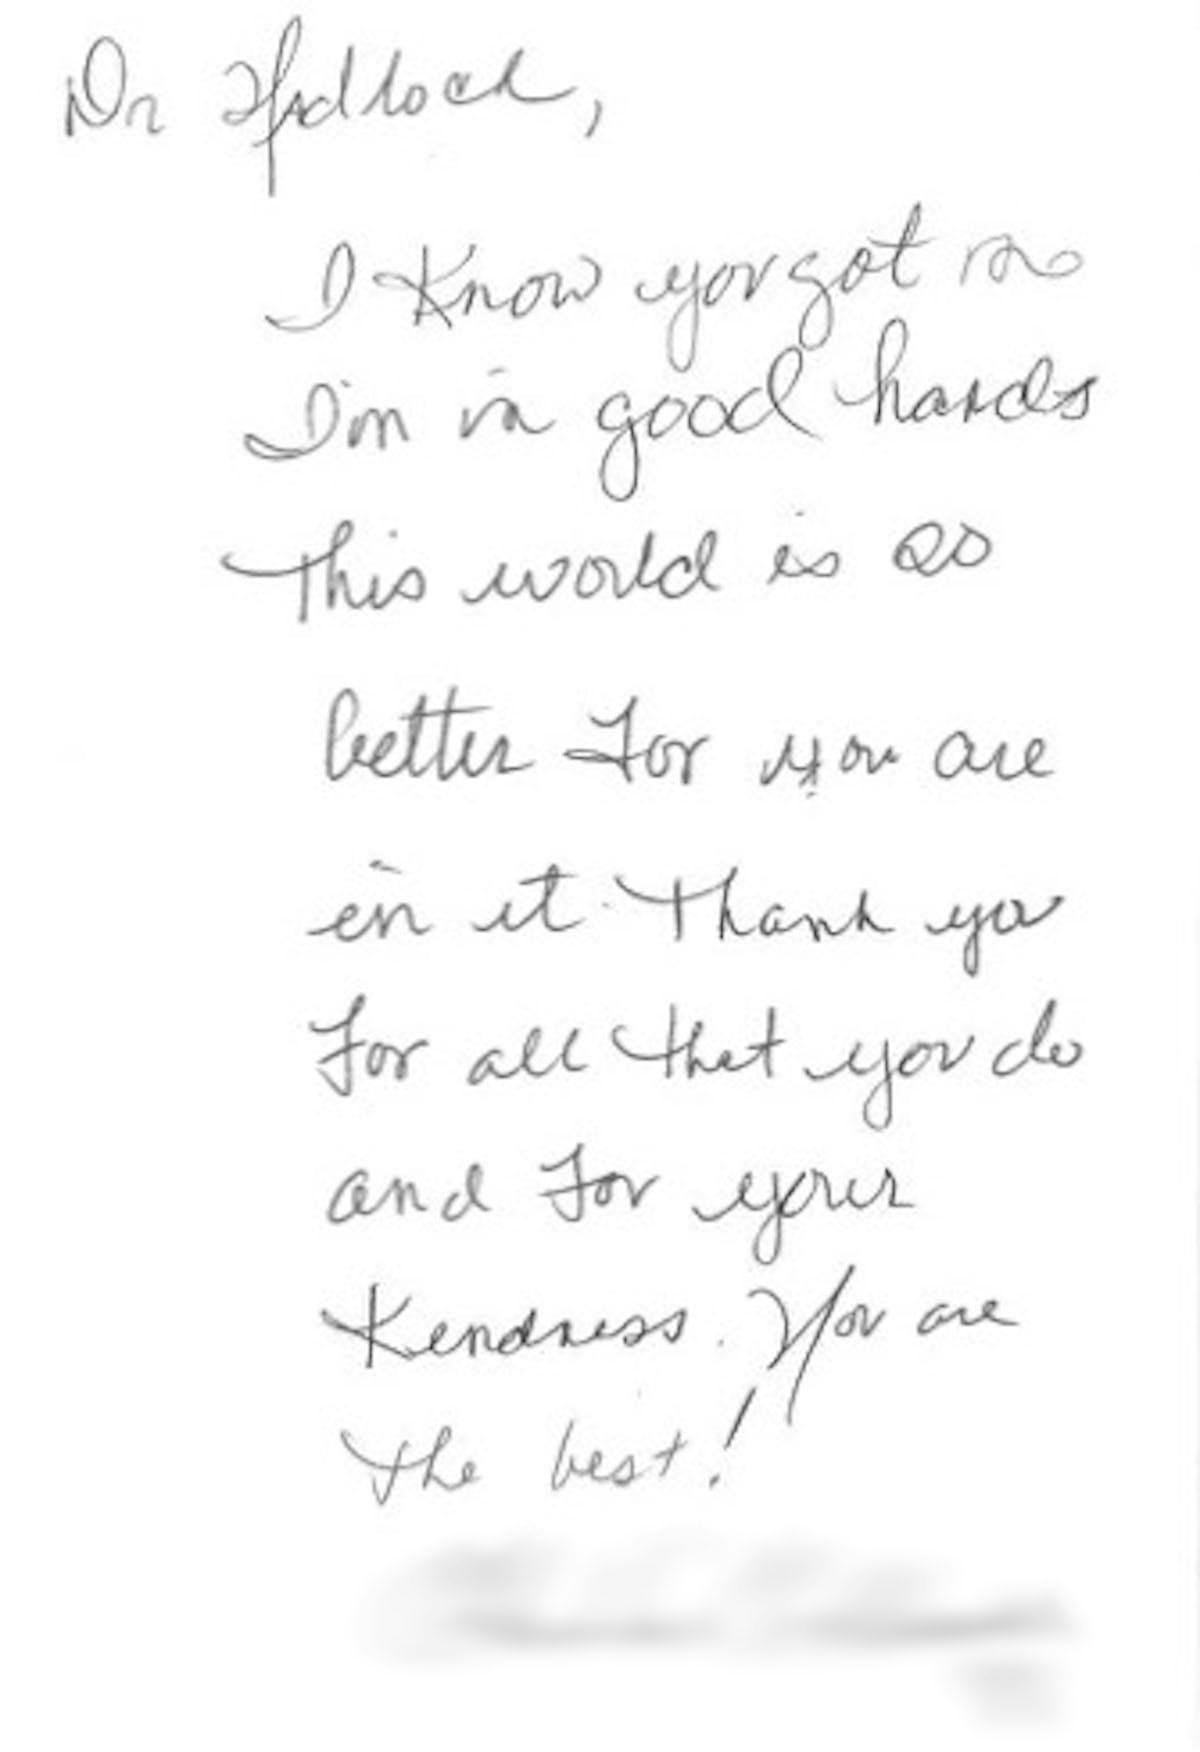 Dr Hadlock,
I Know you got me
I'm in good hands
This world is so
better For you are
in it. Thank you
For all that you do
and For your
Kindness. You are
the best!